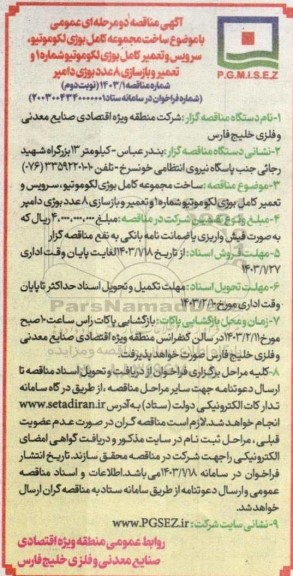 آگهی مناقصه دو مرحله ای عمومی
با موضوع ساخت مجموعه کامل بوژی لکوموتیو،
سرویس و تعمیر کامل بوژی لکوموتیو شماره ۱ و
تعمیر و بازسازی ۸ عدد بوژی دامپر
شماره مناقصه ۱۴۰۳/۱ (نوبت دوم)
(شماره فراخوان در سامانه ستاد ۲۰۰۳۰۰۴۳۴۰۰۰۰۰۱)
P.G.M.I.S.E.Z
۱- نام دستگاه مناقصه گزار: شرکت منطقه ویژه اقتصادی صنایع معدنی
و فلزی خلیج فارس
۲- نشانی دستگاه مناقصه گزار: بندرعباس - کیلومتر ۱۳ بزرگراه شهید
رجائی جنب پاسگاه نیروی انتظامی خونسرخ - تلفن ۱۰-۳۳۵۹۲۲۰۱ (۰۷۶)
۳- موضوع مناقصه: ساخت مجموعه کامل بوژی لکوموتیو، سرویس و
تعمیر کامل بوژی لکوموتیو شماره ۱ و تعمیر و بازسازی ۸ عدد بوژی دامپر
۴- مبلغ و نوع تضمین شرکت در مناقصه: مبلغ ۴،۰۰۰،۰۰۰،۰۰۰ ریال که
به صورت فیش واریزی یا ضمانت نامه بانکی به نفع مناقصه گزار
۵- مهلت فروش اسناد: از تاریخ ۱۴۰۳/۷/۱۸ لغایت پایان وقت اداری
۱۴۰۳/۷/۲۷
۶- مهلت تحویل اسناد: مهلت تکمیل و تحویل اسناد حداکثر تا پایان
وقت اداری مورخ
۷- زمان و محل بازگشایی پاکات: بازگشایی پاکات راس ساعت ۱۰ صبح
مورخ در سالن کنفرانس منطقه ویژه اقتصادی صنایع معدنی
و فلزی خلیج فارس صورت خواهد پذیرفت.
۸- کلیه مراحل برگزاری فراخوان از دریافت و تحویل اسناد مناقصه تا
ارسال دعوتنامه جهت سایر مراحل مناقصه، از طریق درگاه سامانه
تدارکات الکترونیکی دولت (ستاد) به آدرس www.setadiran.ir
انجام خواهد شد. لازم است مناقصه گران در صورت عدم عضویت
قبلی، مراحل ثبت نام در سایت مذکور و دریافت گواهی امضای
الکترونیکی را جهت شرکت در مناقصه محقق سازند. تاریخ انتشار
فراخوان در سامانه ۱۴۰۳/۷/۱۸ می باشد. اطلاعات و اسناد مناقصه
عمومی و ارسال دعوتنامه از طریق سامانه ستاد به مناقصه گران ارسال
خواهد شد.
۹- نشانی سایت شرکت: www.PGSEZ.ir
روابط عمومی منطقه ویژه اقتصادی
صنایع معدنی و فلزی خلیج فارس